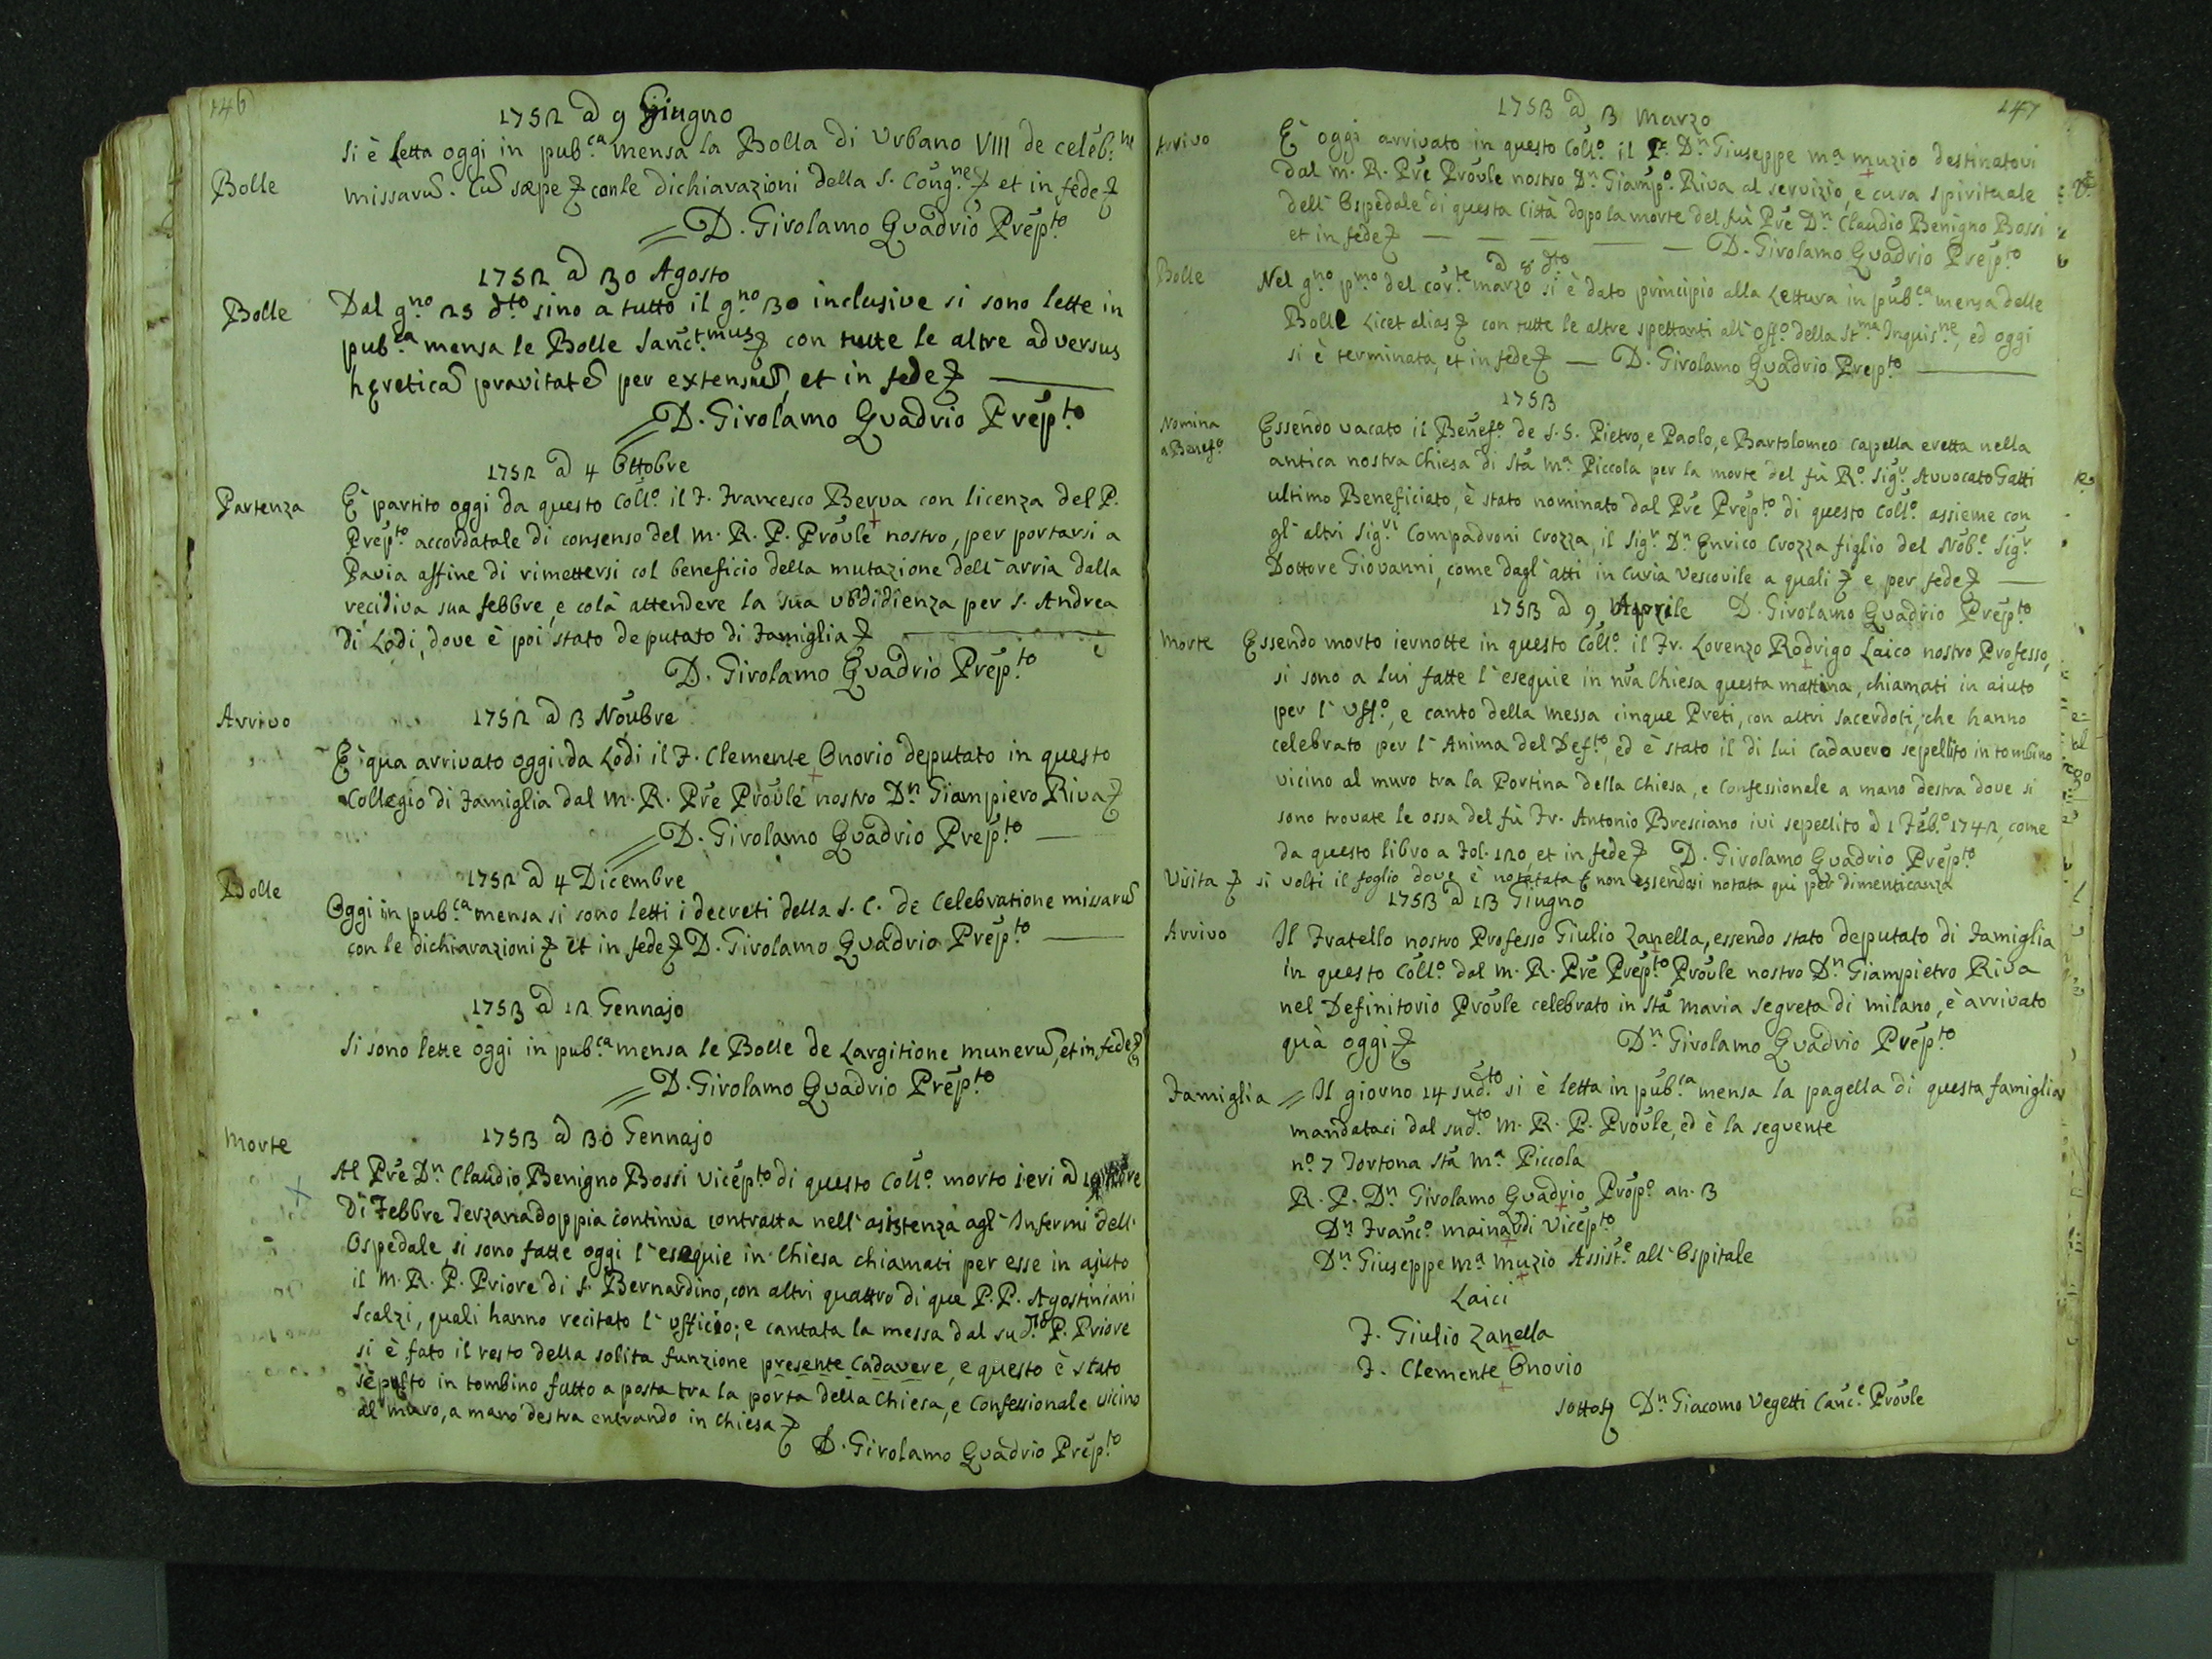 146
1752 a 9 Giugno
Bolle
Si è letta oggi in pub.ca mensa la Bolla di Urbano VIII de celeb.ne
missarū. Cū sæpe & con le dichiarazioni della S. Cong.ne & et in fede &
D. Girolamo Quadrio Prep.to
1752 a 30 Agosto
Bolle
Dal g.no 25 d.to sino a tutto il g.no 30 inclusive si sono lette in
pub.ca mensa le Bolle Sanct.mus & con tutte le altre adversus
hęreticā pravitatē per extensū, et in fede &
D. Girolamo Quadrio Prep.to
1752 a 4 Ottobre
Partenza
È partito oggi da questo Coll.o il F. Francesco Berva con licenza del P.
Prep.to accordatale di consenso del M. R. P. Proule nostro, per portarsi a
Pavia affine di rimettersi col beneficio della mutazione dell'arria dalla
recidiva sua febbre, e colà attendere la sua ubdidienza per S. Andrea
di Lodi, dove è poi stato deputato di Famiglia &
D. Girolamo Quadrio Prep.to
Arrivo
1752 a 3 Noubre
È qua arrivato oggi da Lodi il F. Clemente Onorio deputato in questo
Collegio di Famiglia dal M. R. Pre Proule nostro D.n Giampiero Riva &
D. Girolamo Quadrio Prep.to
1752 a 4 Dicembre
Bolle
Oggi in pub.ca mensa si sono letti i decreti della S. C. de Celebratione missarū
con le dichiarazioni & et in fede & D. Girolamo Quadrio Prep.to
1753 a 12 Gennajo
Si sono lette oggi in pub.ca mensa le Bolle de Largitione munerū, et in fede &
D. Girolamo Quadrio Prep.to
1753 a 30 Gennajo
Morte
Al Pre D.n Claudio Benigno Bossi Vicep.to di questo Coll.o morto ieri a
di Febbre Terzana doppia continua contratta nell'asistenza agl'Infermi dell'
Ospedale si sono fatte oggi l'esequie in Chiesa chiamati per esse in ajuto
il M. R. P. Priore di S. Bernardino, con altri quattro di que P.P. Agostiniani
Scalzi, quali hanno recitato l'ufficio; e cantata la messa dal sud.to P. Priore
si è fato il resto della solita funzione presente Cadavere, e questo è stato
sepulto in tombino fatto a posta tra la porta della Chiesa, e Confessionale vicino
al muro, a mano destra entrando in Chiesa &
D. Girolamo Quadrio Prep.to
147
1753 a 3 Marzo
Arrivo
È oggi arrivato in questo Coll.o il P.e D.n Giuseppe M.a Muzio destinatovi
dal M. R. Pre Proule nostro D.n Giamp.o Riva al servizio, e cura spirituale
dell'Ospedale di questa Città dopo la morte del fù Pre D.n Claudio Benigno Bossi
et in fede & D. Girolamo Quadrio Prep.to
a 8 d.to
Bolle
Nel g.no p.mo del cor.te marzo si è dato principio alla Lettura in pub.ca mensa delle
Bolle Licet alias & con tutte le altre spettanti all'Off.o della St.ma Inquis.ne, ed oggi
si è terminata, et in fede & D. Girolamo Quadrio Prep.to
1753
Nomina
a Benef.o
Essendo vacato il Benef.o de S.S. Pietro, e Paolo, e Bartolomeo Capella eretta nella
antica nostra Chiesa di Sta M.a Piccola per la morte del fù R.o Sig.r Avvocato Gatti
ultimo Beneficiato, è stato nominato dal Pre Prep.to di questo Coll.o assieme con
gl'altri Sig.ri Compadroni Crozza, il Sig.r D.n Enrico Crozza figlio del Nob.e Sig.r
Dottore Giovanni, come dagl'atti in Curia Vescovile a quali & e per fede &
1753 a 9 Aprile D. Girolamo Quadrio Prep.to
Morte
Essendo morto iernotte in questo Coll.o il Fr. Lorenzo Rodrigo Laico nostro Professo,
si sono a lui fatte l'esequie in nra Chiesa questa mattina, chiamati in aiuto
per l'Uff.o, e canto della Messa cinque Preti, con altri Sacerdoti, che hanno
celebrato per l'Anima del Def.to, ed è stato il di lui Cadavero sepellito in tombino
vicino al muro tra la Portina della Chiesa, e Confessionale a mano destra dove si
sono trovate le ossa del fù Fr. Antonio Bresciano ivi sepellito a 1 Feb.o 1742, come
da questo libro a Fol. 120, et in fede & D. Girolamo Quadrio Prep.to
Visita & si volti il foglio dove è notatata & non essendosi notata qui per dimenticanza
1753 a 13 Giugno
Arrivo
Il Fratello nostro Professo Giulio Zanella, essendo stato deputato di Famiglia
in questo Coll.o dal M. R. Pre Prep.to Proule nostro D.n Giampietro Riva
nel Definitorio Proule celebrato in Sta Maria Segreta di Milano, è arrivato
quà oggi & D.n Girolamo Quadrio Prep.to
Famiglia
Il giorno 14 sud.to si è letta in pub.ca mensa la pagella di questa famiglia
mandataci dal sud.to M. R. P. Proule, ed è la seguente
n.o 7 Tortona Sta M.a Piccola
R. P. D.n Girolamo Quadrio Prop.o an. 3
D.n Franc.o Mainardi Vicep.to
D.n Giuseppe M.a Muzio Assist.e all'Ospitale
Laici
F. Giulio Zanella
F. Clemente Onorio
sottos & D.n Giacomo Vegetti Canc.e Proule